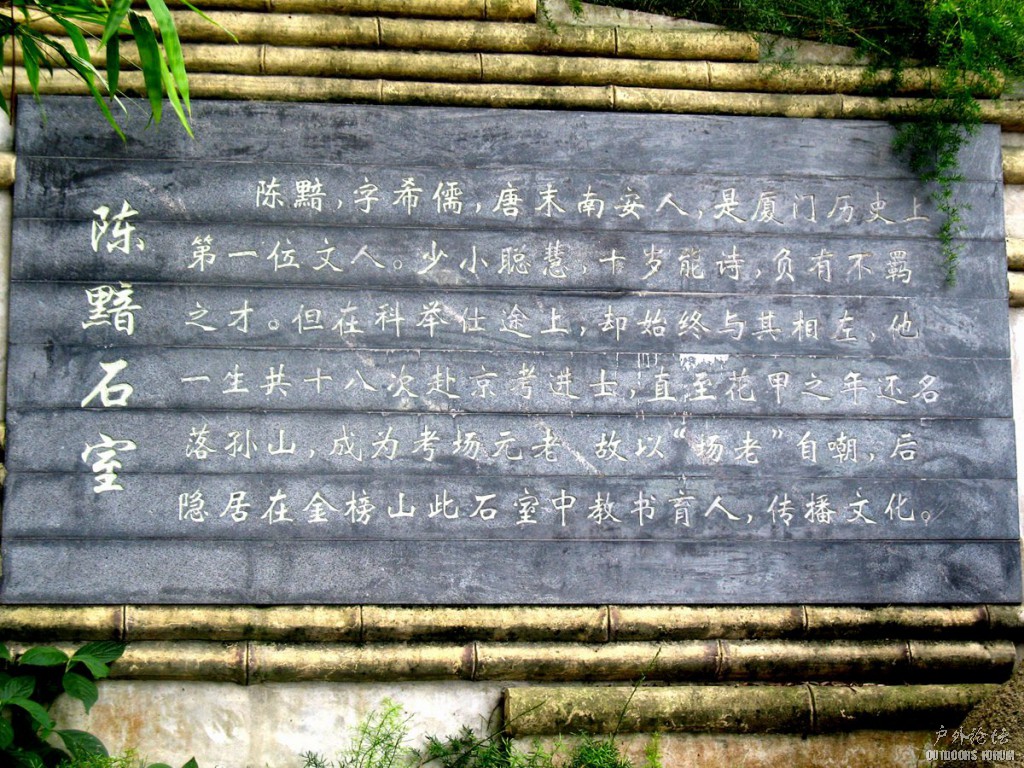 陈黯石室
陈黯,字希儒,唐末南安人,是厦门历史上
第一位文人。少小聪慧,十岁能诗,负有不羁
之才。但在科举仕途上,却始终与其相左,他
一生共十八次赴京考进士,直至花甲之年还名
落孙山,成为考场元老 故以“场老”自嘲,后
隐居在金榜山此石室中教书育人,传播文化。
户外论坛
OUTDOORS FORUM